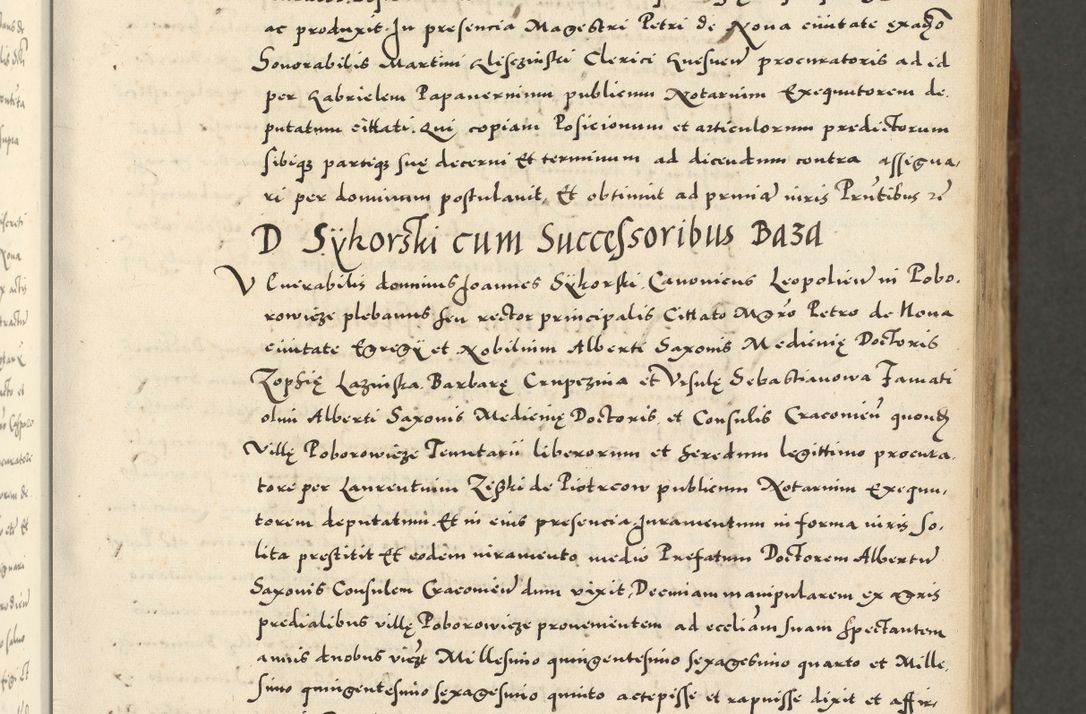 ac produxit. In presencia Magestri Petri de Nova civitate ex axo
Honorabilis Martini Clesczinski Clerici Gnesnen procuratoris ad id
per Gabrielem Papavernium publicum Notarium Exequutorem de
putatum cittati. Qui copiam Posicionum et articulorum predictorum
sibiq partiq suę decerni Et terminum ad dicendum contra assigna,
ri per dominum postulavit, Et obtinuit ad primā iuris Prntibus
D Sÿkorski cum Successoribus Baza
Venerabilis dominus Joannes Sÿkorski, Canonicus Leopolien in Pobo,
rowicze plebanus seu rector principalis Cittato Mgro Petro de Nova
civitate Egregÿ et Nobilium Alberti Saxonis Medicinię Doctoris
Zophię Lazinska, Barbarę Crupczina et Ursulę Sebastianowa Famati
olim Alberti Saxonis Medicinię Doctoris, et Consulis Cracovien quond
Villę Poborowicze Tenutarii liberorum et heredum legittimo procura,
tore per Laurentium Zeski de Piotrcow publicum Notarium Exequu,
torem deputatum. Et in eius presencia Juramentum in forma iuris, So,
lita prestitit Et eodem iuramento medio Prefatum Doctorem Albertum
Saxonis Consulem Cracovien dum vixit, Decimam manipularem ex agris
predialibus villę Poborowicze provenientem ad eccliam suam spectantem
annis duobus vicz Millesimo quingentesimo sexagesimo quarto et Mille,
simo quingentesimo sexagesimo quinto accepisse et rapuisse dixit et affir,